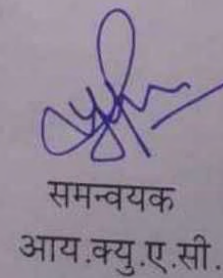 समन्वयक
आय.क्यु.ए.सी.